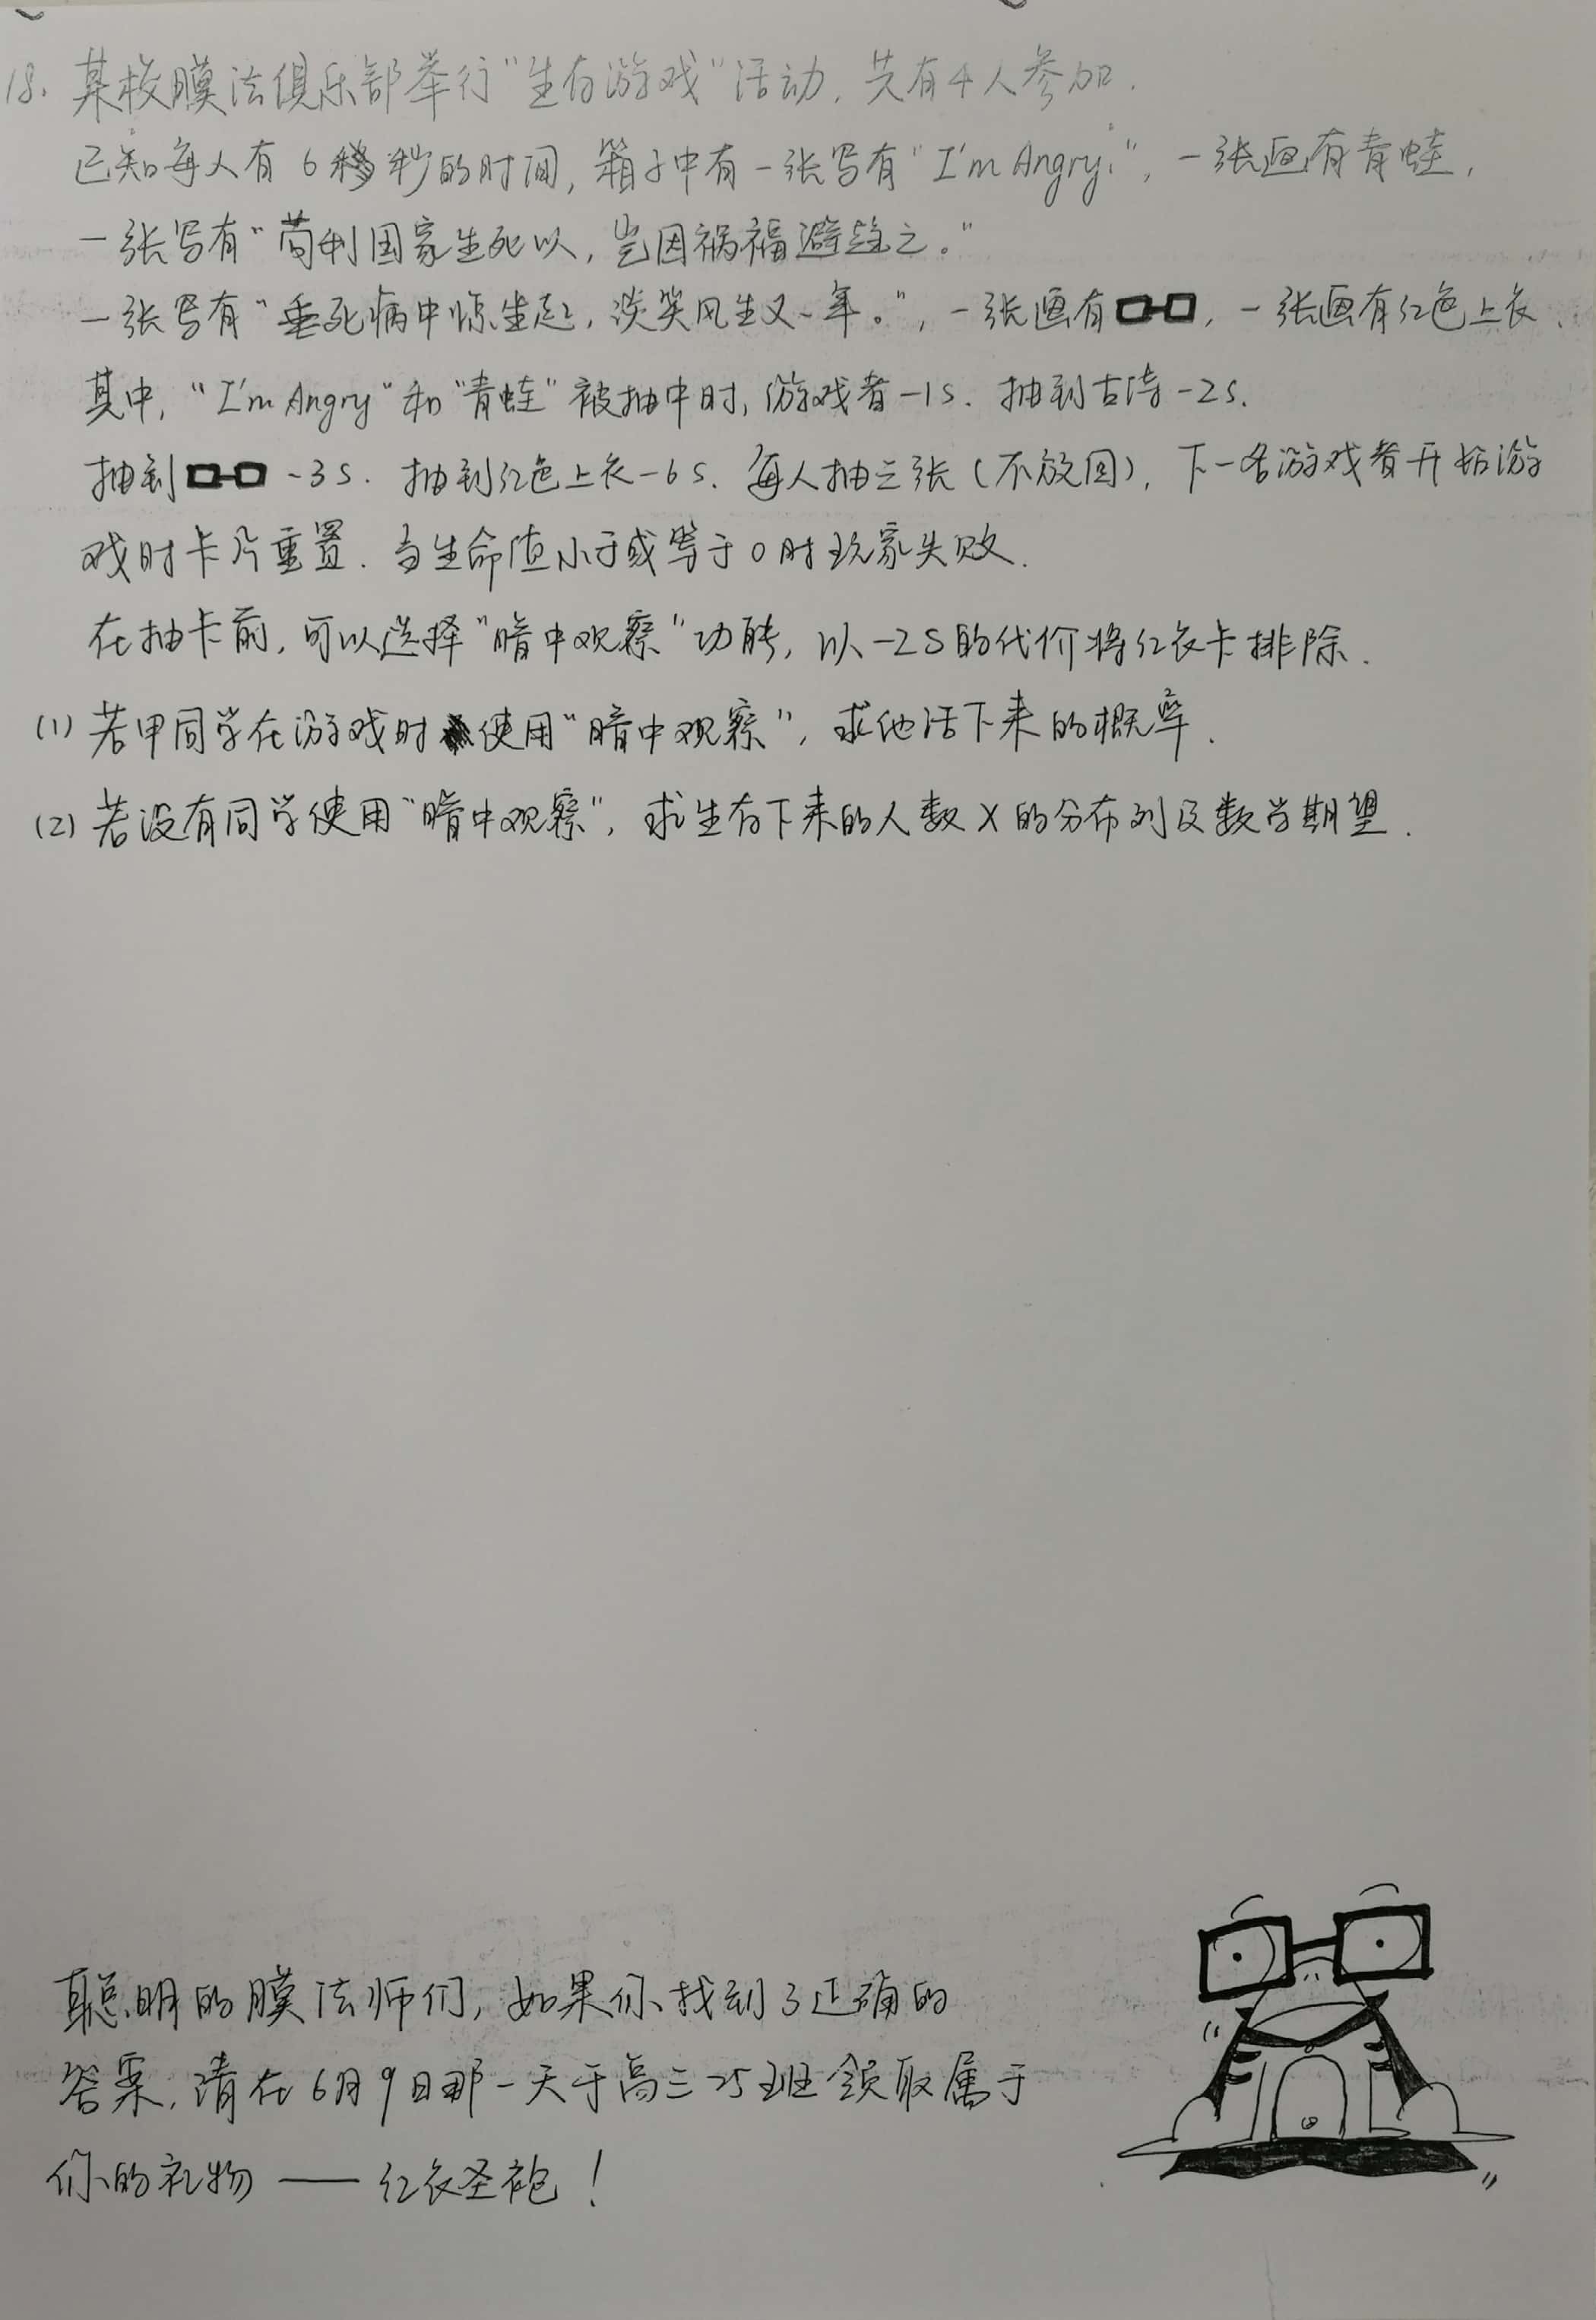 18. 某校膜法俱乐部举行“生存游戏”活动，共有4人参加．
已知每人有 6 秒的时间，箱子中有一张写有“I'm Angry!”，一张画有青蛙，
一张写有“苟利国家生死以，岂因祸福避趋之。”
一张写有“垂死病中惊坐起，谈笑风生又一年。”，一张画有，一张画有红色上衣．
其中，“I'm Angry”和“青蛙”被抽中时，游戏者-1s．抽到古诗-2s．
抽到 -3s．抽到红色上衣-6s．每人抽三张（不放回），下一名游戏者开始游
戏时卡片重置．当生命值小于或等于0时玩家失败．
在抽卡前，可以选择“暗中观察”功能，以-2s的代价将红衣卡排除．
(1) 若甲同学在游戏时使用“暗中观察”，求他活下来的概率．
(2) 若没有同学使用“暗中观察”，求生存下来的人数X的分布列及数学期望．
聪明的膜法师们，如果你找到了正确的
答案，请在6月9日那一天于高三25班领取属于
你的礼物——红衣圣袍！